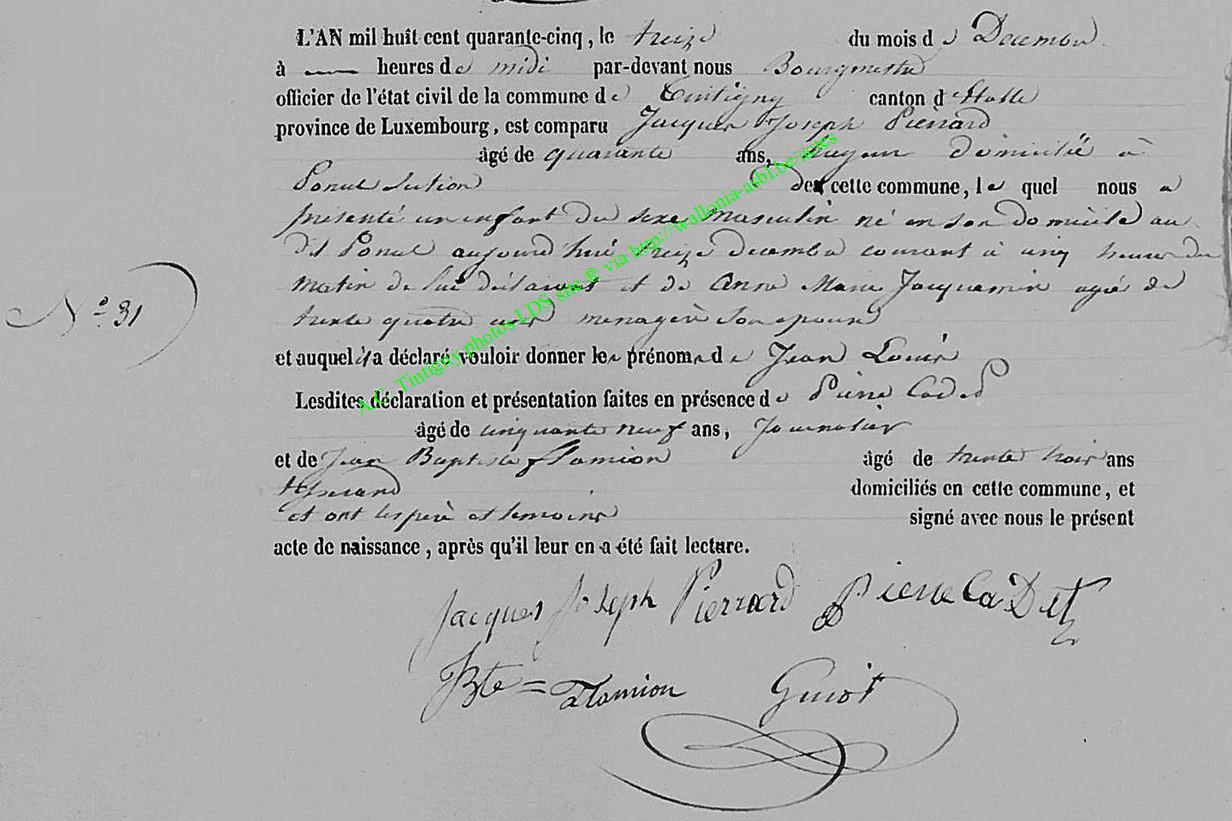 L'AN mil huit cent quarante-cinq, le treize du mois de Decembre
à heures de midi par-devant nous Bourgmestre
officier de l'état civil de la commune de Tintigny canton d'Etalle
province de Luxembourg, est comparu Jacques Joseph Pierrard
âgé de quarante ans, domicilié à
Poncel section de cette commune, le quel nous a
présenté un enfant du sexe masculin né en son domicile au
dit Poncel aujourd'hui treize decembre courant à cinq heures du
matin de lui déclarant et de Anne Marie Jacquemin agée de
trente quatre ans menagère son épouse
et auquel il a déclaré vouloir donner les prénoms de Jean Louis
Lesdites déclaration et présentation faites en présence de Pierre Cadet
âgé de cinquante neuf ans, Journalier
et de Jean Baptiste flamion âgé de trente trois ans
tisserand domiciliés en cette commune, et
et ont les père et temoins signé avec nous le présent
acte de naissance, après qu'il leur en a été fait lecture.
N° 31
Jacques Joseph Pierrard Pierre CaDet
JBte = flamion Guiot
A.C. Tintigny photos LDS site ® via http://wallonia-asbl.be/actes